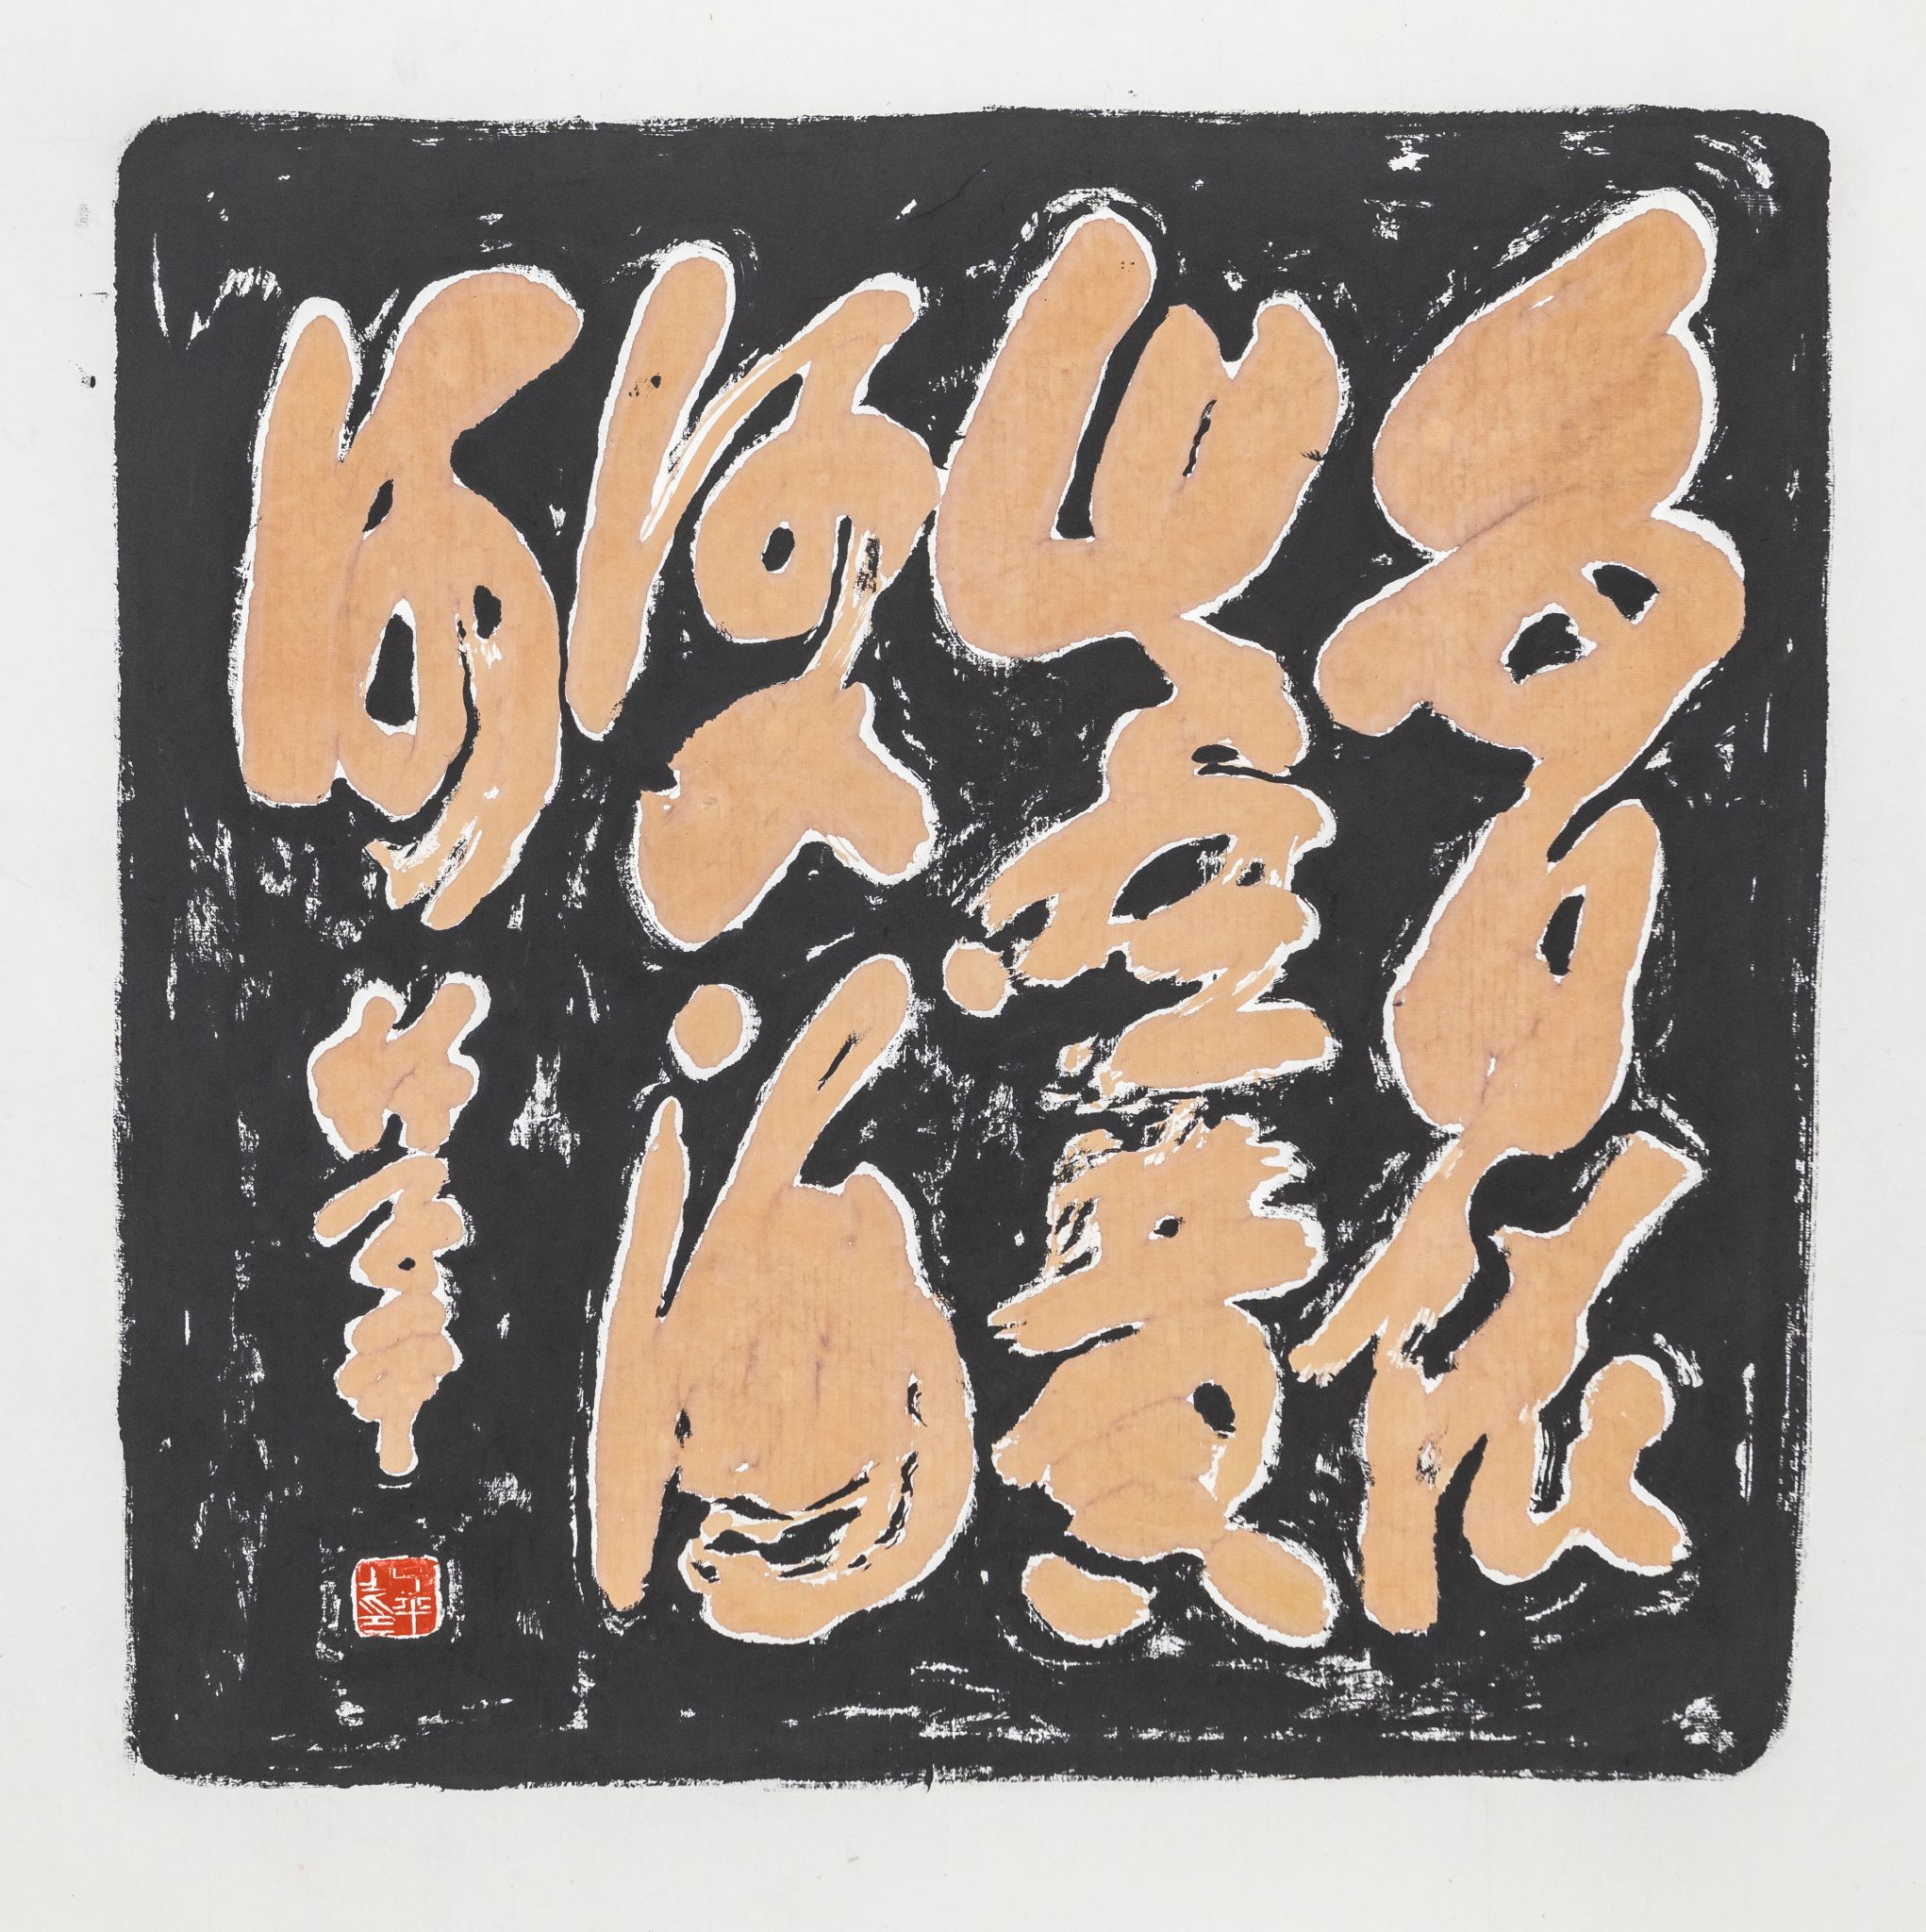 白日依
山盡黃
河入海
流